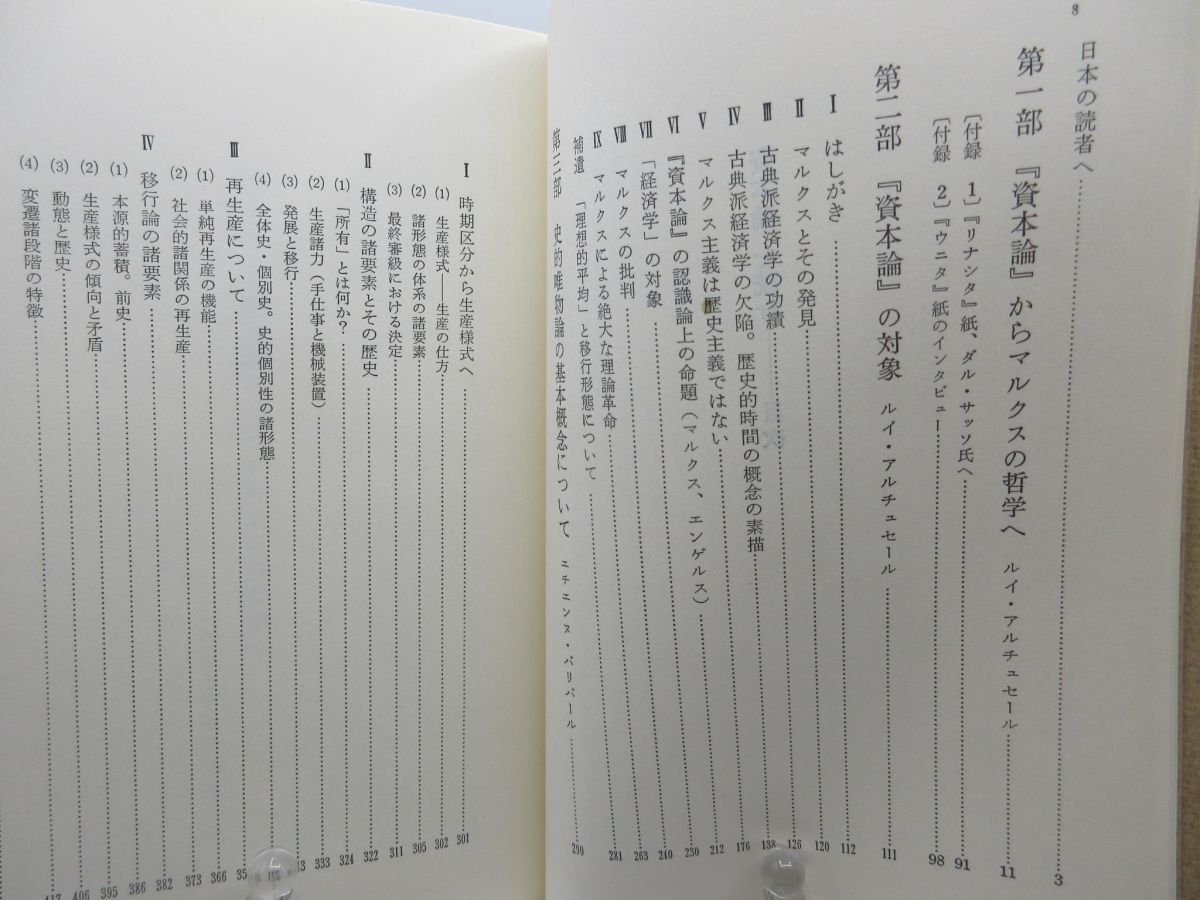 8
日本の読者へ……3
第一部 『資本論』からマルクスの哲学へ ルイ・アルチュセール……11
〔付録 1〕『リナシタ』紙、ダル・サッソ氏へ……91
〔付録 2〕『ウニタ』紙のインタビュー……98
第二部 『資本論』の対象 ルイ・アルチュセール……111
Ⅰ はしがき……112
Ⅱ マルクスとその発見……120
Ⅲ 古典派経済学の功績……126
Ⅳ 古典派経済学の欠陥。歴史的時間の概念の素描……138
Ⅴ マルクス主義は歴史主義ではない……176
Ⅵ 『資本論』の認識論上の命題（マルクス、エンゲルス）……212
Ⅶ 「経済学」の対象……230
Ⅷ マルクスの批判……240
Ⅸ マルクスによる絶大な理論革命……263
補遺 「理想的平均」と移行形態について……281
第三部 史的唯物論の基本概念について エチエンヌ・バリバール……290
Ⅰ 時期区分から生産様式へ……301
(1) 生産様式――生産の仕方……302
(2) 諸形態の体系の諸要素……305
(3) 最終審級における決定……311
Ⅱ 構造の諸要素とその歴史……322
(1) 「所有」とは何か？……324
(2) 生産諸力（手仕事と機械装置）……333
(3) 発展と移行……
(4) 全体史・個別史。史的個別性の諸形態……
Ⅲ 再生産について……
(1) 単純再生産の機能……366
(2) 社会的諸関係の再生産……373
Ⅳ 移行論の諸要素……382
(1) 本源的蓄積。前史……386
(2) 生産様式の傾向と矛盾……395
(3) 動態と歴史……406
(4) 変遷諸段階の特徴……417